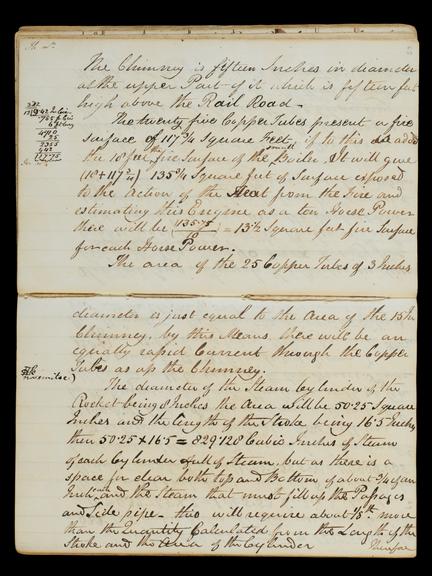 The Chimney is fifteen Inches in diameter
at the upper Part of it which is fifteen feet
high above the Rail Road.
The twenty five Copper Tubes present a fire
surface of 117 3/4 Square Feet, if to this is added
the 18 feet fire Surface of the Boiler It will give
small
(18+117 3/4) 135 3/4 Square feet of Surface exposed
to the action of the Heat from the Fire and
estimating this Engine as a ten Horse Power
there will be (135.75/10) = 13 1/2 Square feet fire Surface
for each Horse Power.
The area of the 25 Copper Tubes of 3 Inches
diameter is just equal to the Area of the 15 In
Chimney, by this Means there will be an
equally rapid Current through the Copper
Tubes as up the Chimney.
The diameter of the Steam Cylinder of the
Rocket being 8 Inches the Area will be 50.25 Square
Inches and the length of the Stroke being 16.5 Inches
then 50.25 x 16.5 = 829.120 Cubic Inches of Steam
of each Cylinder full of Steam, but as there is a
space for clear both top and Bottom of about 3/4 of an
Inch, and the Steam that must fill up the Passages
and Side pipe - this will require about 1/5th more
than the Quantity Calculated from the Length of the
Stroke and the Area of the Cylinder
Therefore